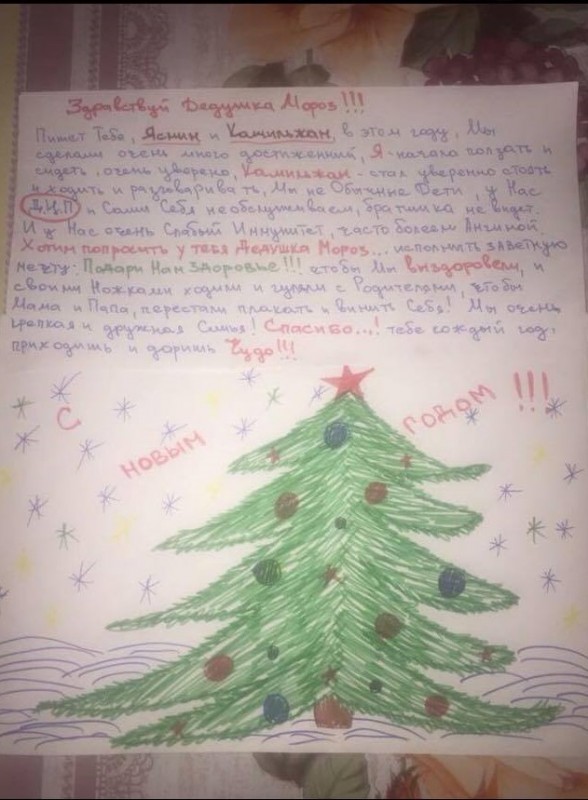 Здравствуй Дедушка Мороз!!!
Пишет Тебе, Ясмин и Камильжан, в этом году, Мы
сделали очень много достижений, Я - начала ползать и
сидеть, очень уверено, Камильжан - стал уверенно стоять
и ходить и разговаривать, Мы не Обычные Дети, у Нас
Д.Ц.П и Сами Себя необслуживаем, братишка не видет.
И у Нас очень Слабый Иммунитет, часто болеем Ангиной.
Хотим попросить у тебя Дедушка Мороз... исполнить заветную
мечту: Подари Нам Здоровье!!! чтобы Мы выздоровели, и
своими Ножками ходили и гуляли с Родителями, чтобы
Мама и Папа, перестали плакать и винить Себя! Мы очень
крепкая и дружная Семья! Спасибо...! тебе каждый год,
приходишь и даришь Чудо!!!
С НОВЫМ ГОДОМ !!!